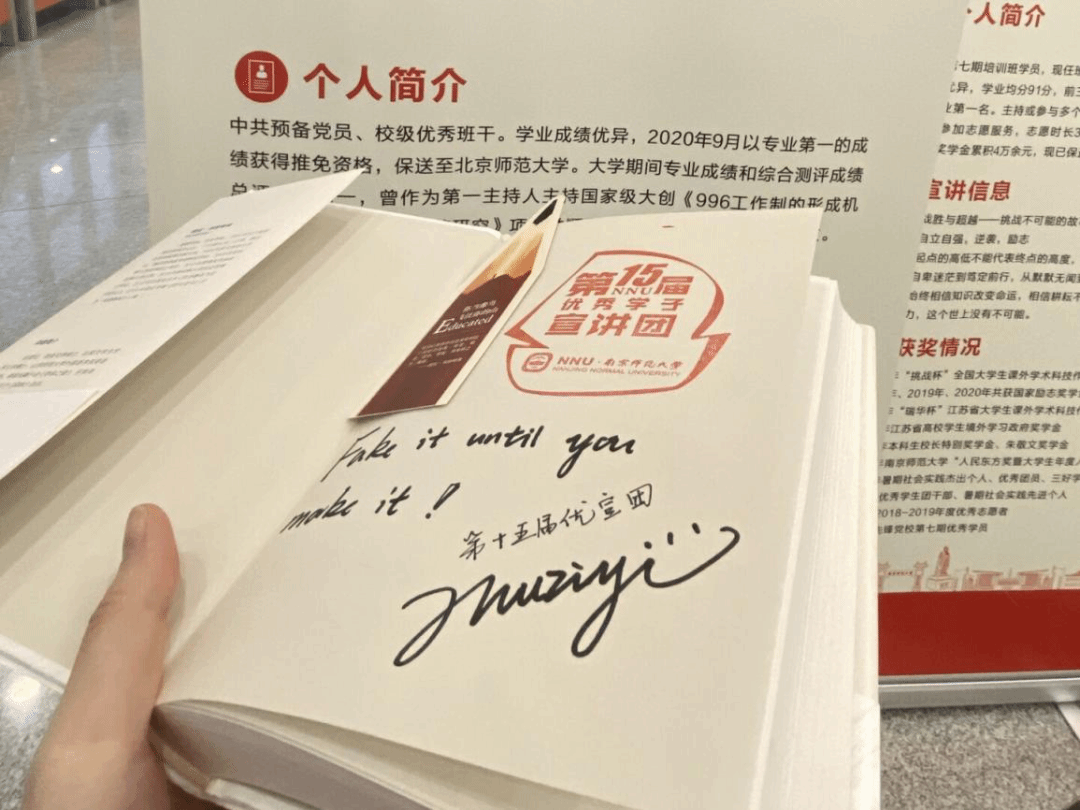 个人简介
中共预备党员、校级优秀班干。学业成绩优异，2020年9月以专业第一的成
绩获得推免资格，保送至北京师范大学。大学期间专业成绩和综合测评成绩
一，曾作为第一主持人主持国家级大创《996工作制的形成机
研究》项
Educated
第15届
NNU
优秀学子
宣讲团
NNU·南京师范大学
NANJING NORMAL UNIVERSITY
Fake it until you
make it!
第十五届优宣团
Zhuziyi
个人简介
七期培训班学员，现任班
优异，学业均分91分，前三
业第一名。主持或参与多个
参加志愿服务，志愿时长3
奖学金累积4万余元，现已保
宣讲信息
战胜与超越——挑战不可能的故
自立自强，逆袭，励志
起点的高低不能代表终点的高度，
自卑迷茫到笃定前行，从默默无闻
始终相信知识改变命运，相信耕耘不
力，这个世上没有不可能。
获奖情况
“挑战杯”全国大学生课外学术科技作
、2019年、2020年共获国家励志奖学
“瑞华杯”江苏省大学生课外学术科技作
江苏省高校学生境外学习政府奖学金
本科生校长特别奖学金、朱敬文奖学金
南京师范大学“人民东方奖暨大学生年度人
暑期社会实践杰出个人、优秀团员、三好学
优秀学生团干部、暑期社会实践先进个人
2018-2019年度优秀志愿者
先锋党校第七期优秀学员